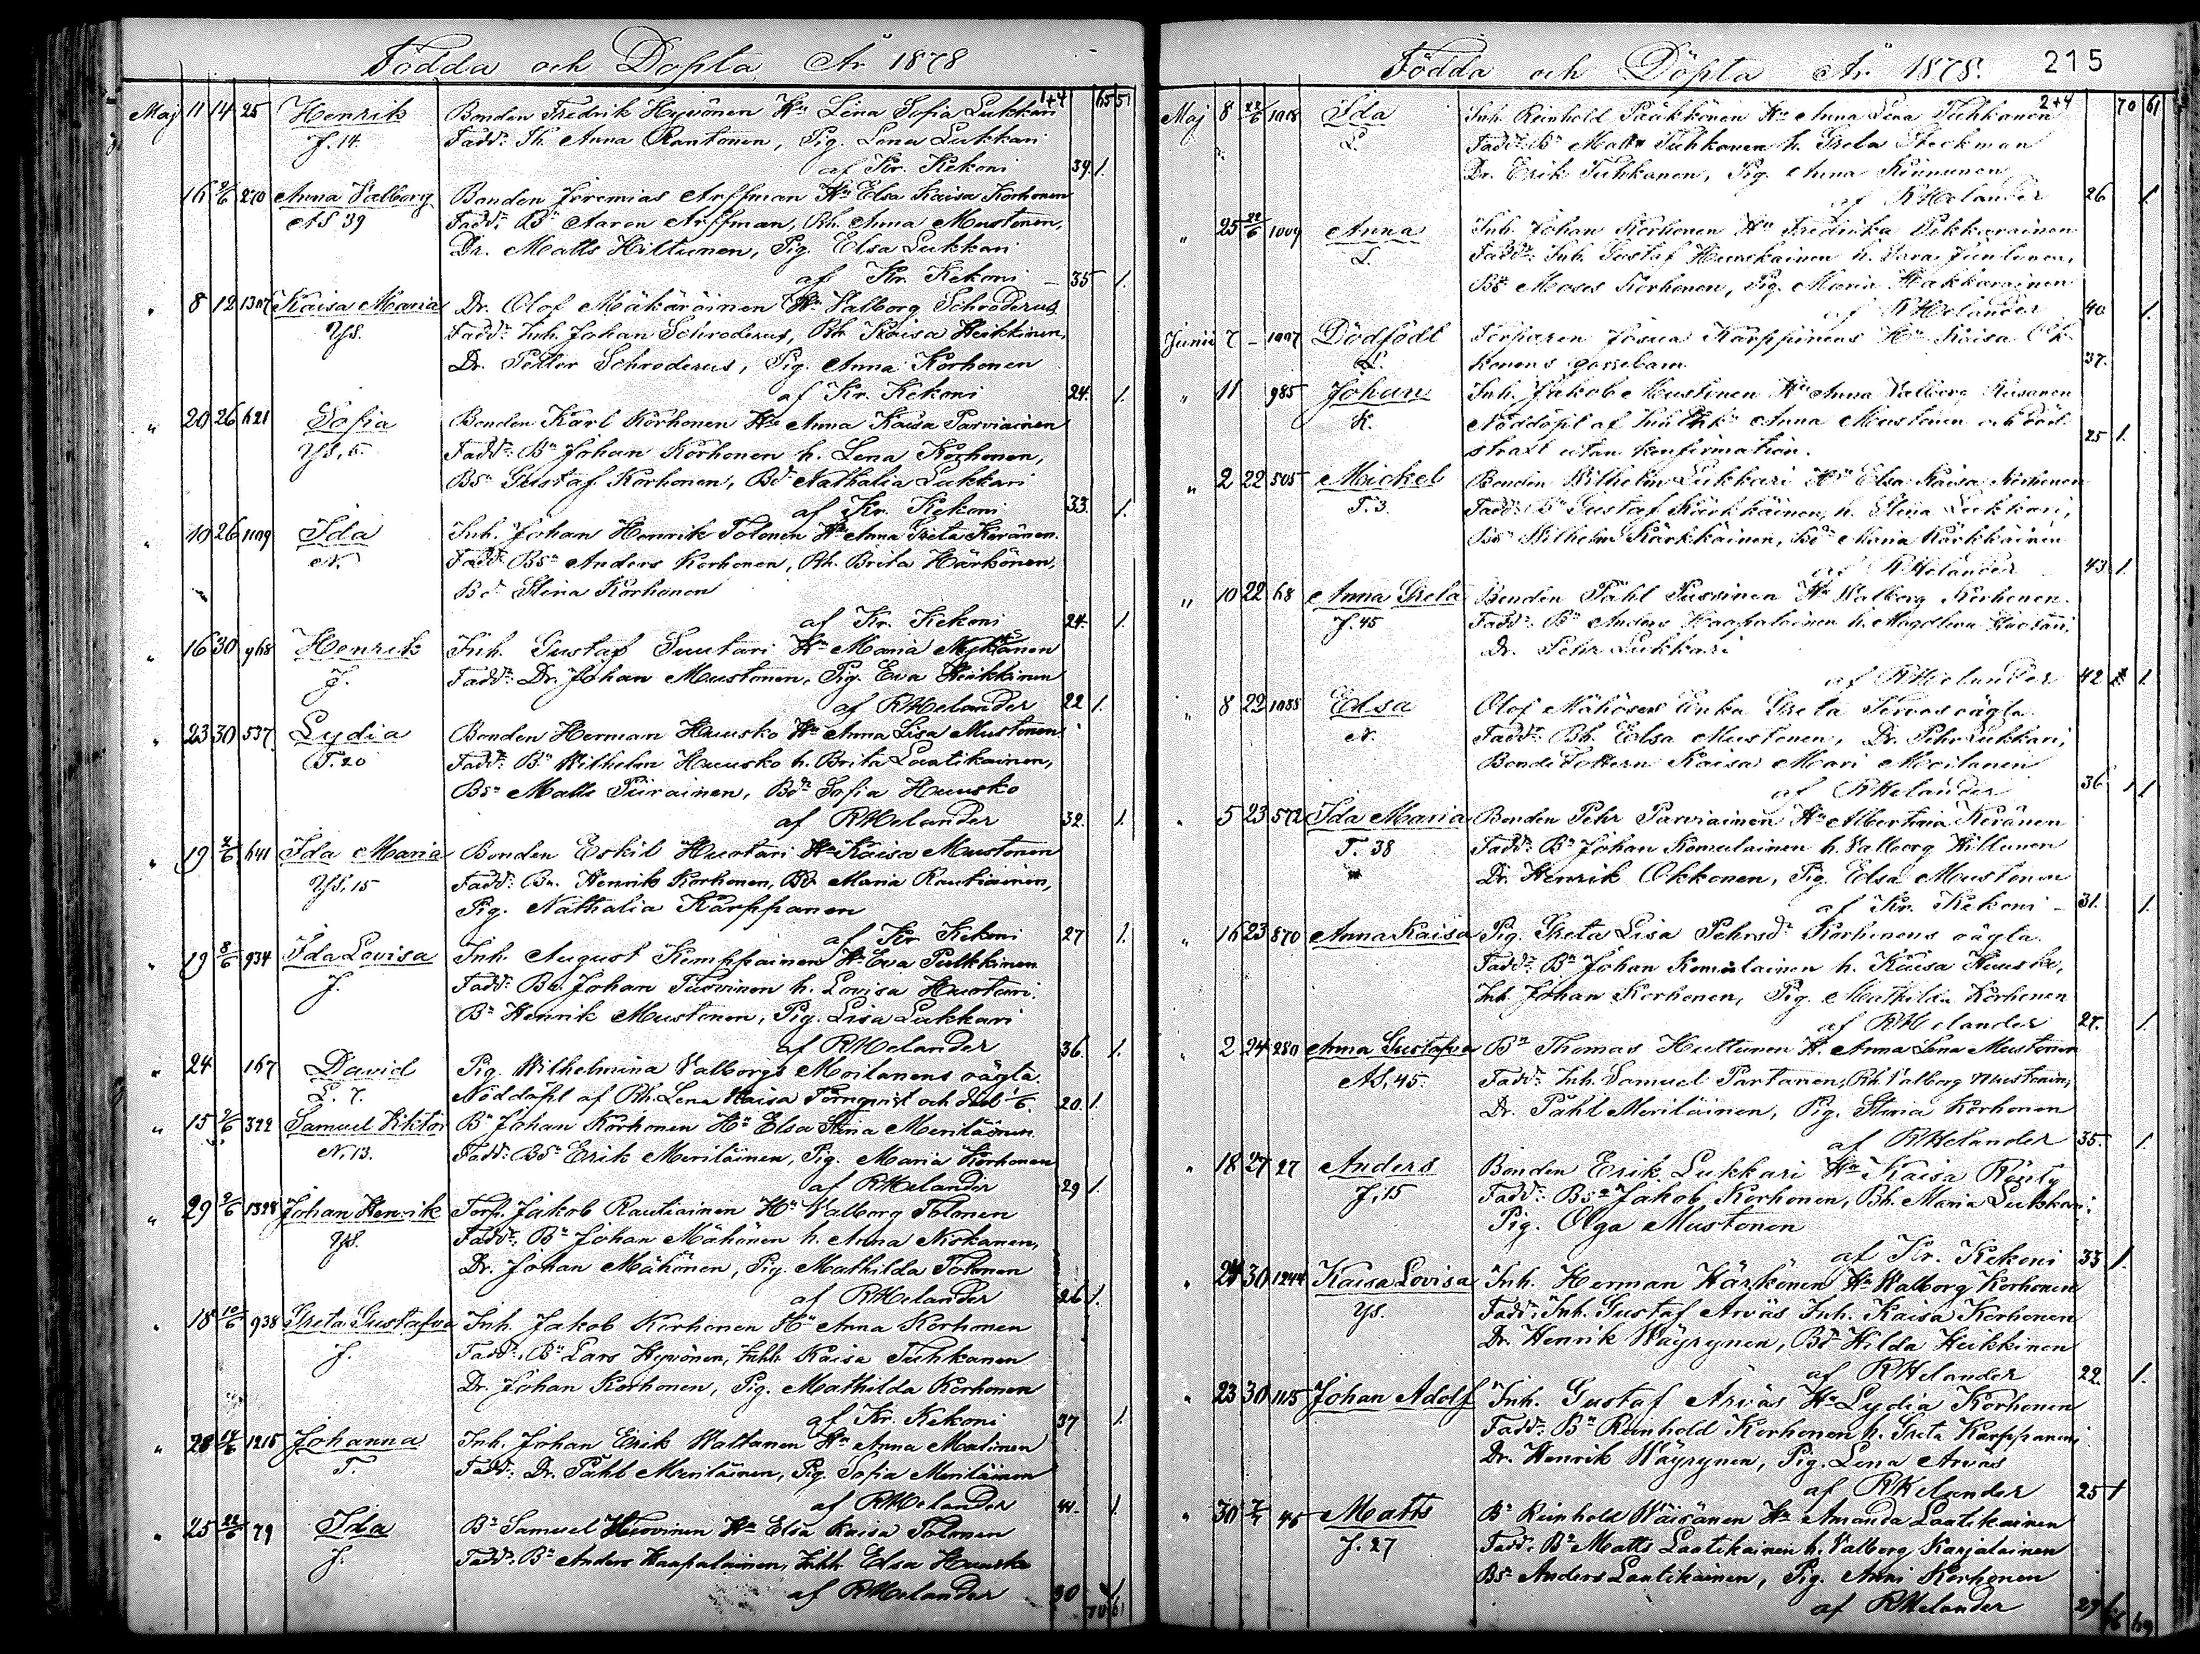 Födda och Döpta År 1878
1+4 65 51
Maj 11 14 25 Henrik Bonden Fredrik Hyvönen Hu Lena Sofia Lukkari
J. 14. Fadd: Ih. Anna Rantonen, Pig. Lena Lukkari
af Kr. Kekoni 39. 1.
16 2/6 270 Anna Valborg Bonden Jeremias Arffman Hu Elsa Kaisa Korhonen
AS 39 Fadd: Bn Aaron Arffman, Bh. Anna Mustonen,
Dr. Matts Hiltunen, Pig. Elsa Lukkari
af Kr. Kekoni 35 1.
" 8 12 1307 Kaisa Maria Dr. Olof Mäkäräinen Hu Valborg Schroderus
YS. Fadd: Inh. Johan Schroderus, Bh. Kaisa Heikkinen,
Dr. Petter Schroderus, Pig. Anna Korhonen
af Kr. Kekoni 24. 1.
" 20 26 621 Sofia Bonden Karl Korhonen Hu Anna Kaisa Parviainen
YS, 6. Fadd: Bn Johan Korhonen h. Lena Korhonen,
Bsn Gustaf Korhonen, Bd Nathalia Lukkari
af Kr. Kekoni 33. 1.
" 10 26 1109 Ida Inh. Johan Henrik Tolonen Hu Anna Greta Keränen.
N. Fadd: Bsn Anders Korhonen, Bh. Brita Härkönen,
Bd. Stina Korhonen
af Kr. Kekoni 24. 1.
" 16 30 968 Henrik Inh. Gustaf Suutari Hu Maria
J. Fadd: Dr. Johan Mustonen, Pig. Eva Heikkinen
af RHelander 22 1.
" 23 30 537 Lydia Bonden Herman Huusko Hu Anna Lisa Mustonen
T. 20 Fadd: Bn Wilhelm Huusko h. Brita Laatikainen,
Bsn Matts Piirainen, Bdr Sofia Huusko
af RHelander 32. 1.
" 19 641 Ida Maria Bonden Eskil Huotari Hu Kaisa Mustonen
YS, 15 Fadd: Bn. Henrik Korhonen, Bd Maria Rautiainen,
Pig. Nathalia Karppanen
af Kr Kekoni 27 1.
" 19 8/6 934 Ida Lovisa Inh. August Kemppainen Hu Eva Pulkkinen
J. Fadd: Bn. Johan Tuovinen h. Lovisa Huotari.
Bn Henrik Mustonen, Pig. Lisa Lukkari
af RHelander 36. 1.
" 24 167 David Pig. Wilhelmina Valborgs Moilanens oägta.
L. 7. Nöddöpt af Bh. Lena Kaisa Törnqvist och 20. 1.
" 15 322 Samuel Viktor Bn Johan Korhonen Hu Elsa Stina Meriläinen.
N. 13. Fadd: Bsn Erik Meriläinen, Pig. Maria Korhonen
af RHelander 29 1.
" 29 9/6 1328 Johan Henrik Torp. Jakob Rautiainen Hu Valborg Tolonen
YS. Fadd: Bn Johan Mähönen h. Anna Niskanen,
Dr. Johan Mähönen, Pig. Mathilda Tolonen
af RHelander 26 1.
" 18 10/6 938 Greta Gustafva Inh. Jakob Korhonen Hu Anna Korhonen
J. Fadd: Bn Lars Hyvönen, Inhh Kaisa Tuhkanen
Dr. Johan Korhonen, Pig. Mathilda Korhonen
af Kr. Kekoni 37 1.
" 28 1215 Johanna Inh. Johan Erik Waltanen Hu Anna Malinen
T. Fadd: Dr. Påhl Meriläinen, Pig. Sofia Meriläinen
af RHelander 1.
" 25 22/6 79 Ida Bn Samuel Huovinen Hu Elsa Kaisa Tolonen
J. Fadd: Bn Anders Haapalainen, Inhh Elsa Huusko
af RHelander 30 1.
70 61
Födda och Döpta År 1878. 215
2+4 70 61
Maj 8 22/6 1018 Ida Inh. Reinhold Pääkkönen Hu Anna Lena Tuhkanen
L. Fadd: Bn Matts Tuhkanen h. Greta Steckman
Dr. Erik Tuhkanen, Pig. Anna Kinnunen
af RHelander 26 1.
" 25 22/6 1009 Anna Inh. Johan Korhonen Hu Fredrika Pikkarainen
L. Fadd: Inh. Gustaf h. Sara Juntunen,
Bsn Moses Korhonen, Pig. Maria Hakkarainen
af RHelander 40 1.
Junii 7 – Dödfödt Torparen Josua Karppinens Hu Kaisa Ok
L. konens gossebarn 37.
" 11 985 Johan Inh. Jakob Moustinen Hu Anna Valborg
K. Nöddöpt af Anna Mustonen och död
straxt utan konfirmation. 25 1.
" 2 22 505 Mickel Bonden Wilhelm Lukkari Hu Elsa Kaisa Korhonen
T. 3. Fadd: Bn Gustaf Kärkkäinen, h. Stina Lukkari,
Bsn Wilhelm Kärkkäinen, Bd Maria Kärkkäinen
af RHelander 43 1.
" 10 22 68 Anna Greta Bonden Påhl Tuovinen Hu Walborg Korhonen.
J. 45 Fadd: Bn Anders Haapalainen h. Magdlena Huotari,
Dr. Pehr Lukkari
af RHelander 42 1.
" 8 22 1055 Elsa Olof Mähösens Enka Greta Tervos oägta.
N. Fadd: Bh. Elsa Mustonen, Dr. Pehr Lukkari,
Bonde Dottern Kaisa Mari Moilanen
af RHelander 36 1
" 5 23 572 Ida Maria Bonden Pehr Parviainen Hu Albertina Keränen
T. 38 Fadd: Bn Johan Komulainen h. Valborg Hiltunen
Dr. Henrik Okkonen, Pig. Elsa Mustonen
af Kr. Kekoni 31. 1.
" 16 23 870 Anna Kaisa Pig. Greta Lisa Pehrsdr Korhonens oägta.
Fadd: Bn Johan Komulainen h. Kaisa Huusko,
Inh. Johan Korhonen, Pig. Mathilda Korhonen
af RHelander 27. 1.
" 2 24 280 Anna Gustafva Bn Thomas Huttunen H. Anna Lena Mustonen
AS, 45. Fadd: Inh. Samuel Partanen, Bh Valborg Mustonen,
Dr. Påhl Meriläinen, Pig. Stina Korhonen
af RHelander 35. 1.
" 18 27 27 Anders Bonden Erik Lukkari Hu Kaisa Rönty
J, 15 Fadd: Bsn Jakob Korhonen, Bh. Maria Lukkari
Pig. Olga Mustonen
af Kr. Kekoni 33 1.
" 24 30 1244 Kaisa Lovisa Inh. Herman Härkönen Hu Walborg Korhonen
YS. Fadd: Inh. Gustaf Arväs Inh. Kaisa Korhonen
Dr. Henrik Wäyrynen, Bd Hilda Heikkinen
af RHelander 22. 1.
" 23 30 1115 Johan Adolf Inh. Gustaf Arväs Hu Lydia Korhonen
Fadd: Bn Reinhold Korhonen h. Greta Karppanen
Dr. Henrik Wäyrynen, Pig. Lena Arväs
af RHelander 25 1
" 30 45 Matts Bn Reinhold Wäisänen Hu Amanda Laatikainen
J. 27 Fadd: Bn Matts Laatikainen h. Valborg Karjalainen
Bsn Anders Laatikainen, Pig. Anni Korhonen
af RHelander 29 1.
76 69